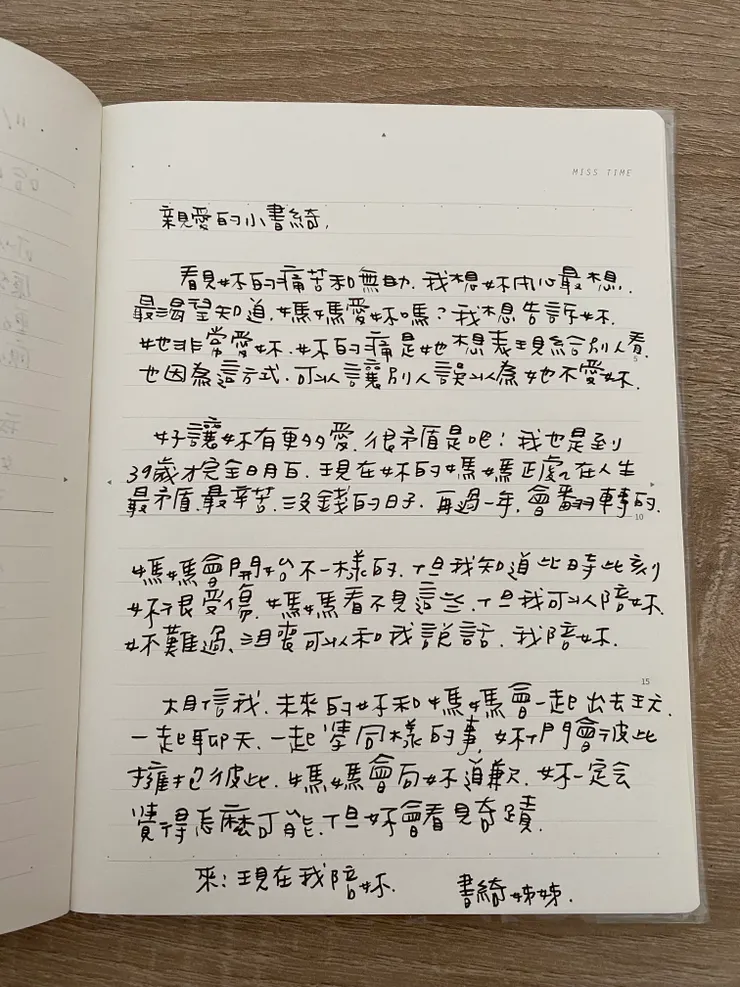 MISS TIME
親愛的小書綺,
看見妳的痛苦和無助.我想妳內心最想.
最渴望知道,媽媽愛妳嗎?我想告訴妳.
她非常愛妳.妳的痛是她想表現給別人看.
5
也因為這方式.可以讓別人誤以為她不愛妳.
好讓妳有更多愛.很矛盾是吧!我也是到
39歲才完全明白.現在妳的媽媽正處在人生
最矛盾.最辛苦.沒錢的日子.再過一年,會翻轉的.
10
媽媽會開始不一樣的.但我知道此時此刻
妳很受傷.媽媽看不見這些.但我可以陪妳.
妳難過、沮喪可以和我說話.我陪妳.
15
相信我.未來的妳和媽媽會一起出去玩.
一起聊天.一起筆同樣的事,妳們會彼此
擁抱彼此.媽媽會向妳道歉.妳一定會
覺得怎麼可能.但妳會看見奇蹟.
來!現在我陪妳.
書綺姊姊.